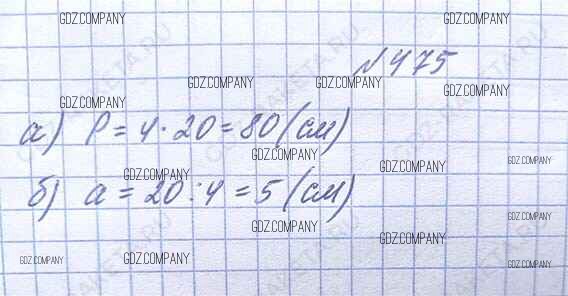 GDZ.COMPANY GDZ.COMPANY
№475
GDZ.COMPANY GDZ.COMPANY GDZ.COMPANY
GDZ.COMPANY
а) P = 4 · 20 = 80 (см)
GDZ.COMPANY GDZ.COMPANY
GDZ.COMPANY GDZ.COMPANY
б) a = 20 : 4 = 5 (см)
GDZ.COMPANY GDZ.COMPANY
GDZ.COMPANY
GDZ.COMPANY GDZ.COMPANY GDZ.COMPANY